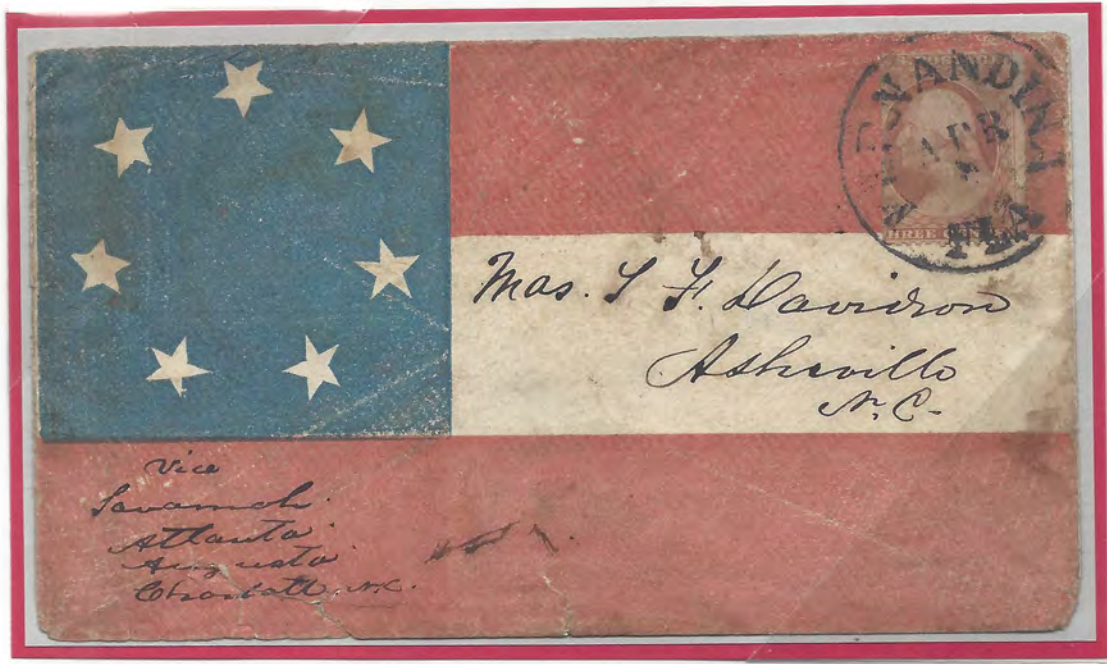 FERNANDINA
APR
FLA
THREE
Mrs. S F. Davidson
Asheville
N. C.
Vice
Savannah.
Atlanta
Augusta
Charlott N.C.